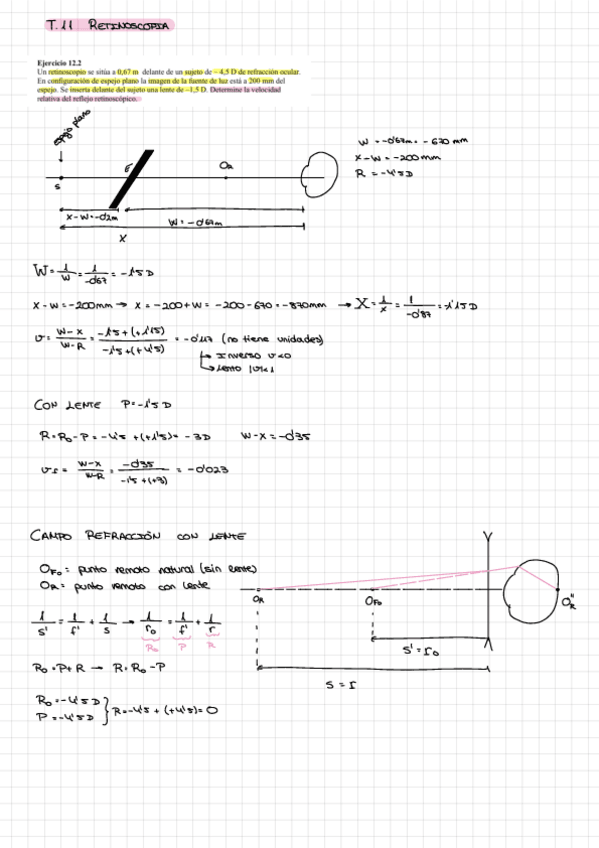 T.11 RETINOSCOPIA
Ejercicio 12.2
Un retinoscopio se sitúa a 0,67 m delante de un sujeto de −4,5 D de refracción ocular.
En configuración de espejo plano la imagen de la fuente de luz está a 200 mm del
espejo. Se inserta delante del sujeto una lente de −1,5 D. Determine la velocidad
relativa del reflejo retinoscópico.
espejo plano
W = -0'67m = -670 mm
X-W = -200mm
R = -4'5D
S
OR
X-W=-0'2m
W = -0'67m
X
W = 1/W = 1/-0'67 = -1'5D
X-W = -200mm → X = -200+W = -200-670 = -870mm → X = 1/X = 1/-0'87 = -1'15D
v = W-X/W-R = -1'5+(+1'15)/-1'5+(+4'5) = -0'117 (no tiene unidades)
↳ Inverso v<0
↳ lento |v|<1
CON LENTE P=-1'5D
R = R0-P = -4'5+(+1'5) = -3D W-X = -0'35
W-X/W-R = -0'35/-1'5+(+3) = -0'023
CAMPO REFRACCIÓN CON LENTE
OF0: punto remoto natural (sin lente)
OR: punto remoto con lente
1/S' = 1/f' + 1/S → 1/r0 = 1/f' + 1/r
R0 P R
R0 = P+R → R = R0-P
R0 = -4'5D
P = -4'5D } R = -4'5+(+4'5) = 0
OR
OF0
OR''
S' = r0
S = r